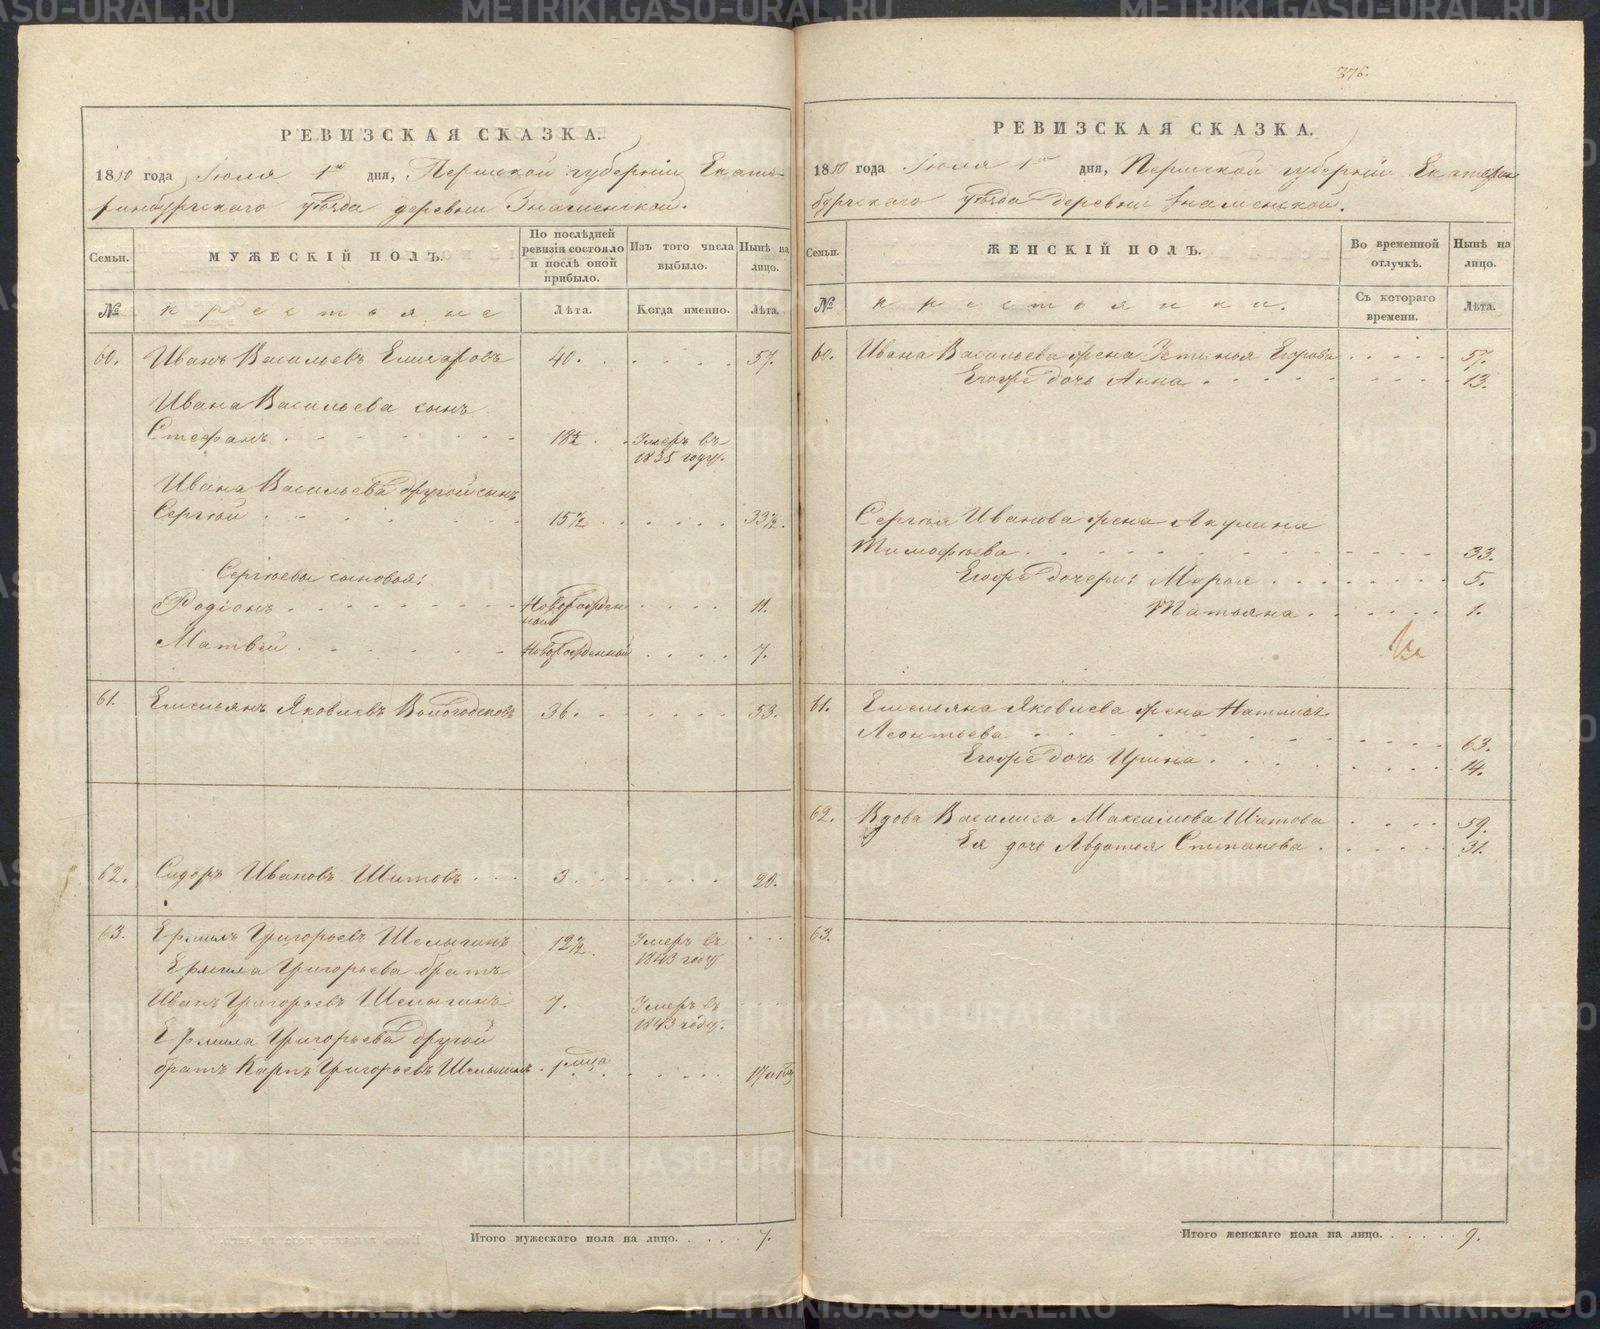 376.
РЕВИЗСКАЯ СКАЗКА.
1850 года Іюля 1го дня, Пермской губерніи Екате-
ринбургскаго уѣзда деревни Знаменской.
Семьи.
МУЖЕСКІЙ ПОЛЪ.
По послѣдней ревизіи состояло и послѣ оной прибыло.
Изъ того числа выбыло.
Нынѣ на лицо.
№
крестьяне
Лѣта.
Когда именно.
Лѣта.
60. Иванъ Васильевъ 40. 57.
Ивана Васильева сынъ
Стефанъ 18½ Умеръ въ
1835 году.
Ивана Васильева другой сынъ
Сергѣй 15½ 33½.
Сергѣевы сыновья:
Родіонъ Новорожден
ный 11.
Матвѣй Новорожденный 7.
61. Емельянъ Яковлевъ Вологодсковъ 36. 53.
62. Сидоръ Ивановъ Шитовъ 3. 20.
63. Ермилъ Григорьевъ Шелыгинъ 12½. Умеръ въ
1843 году
Ермила Григорьева братъ
Иванъ Григорьевъ Шелыгинъ 7. Умеръ въ
1843 году.
Ермила Григорьева другой
братъ Карпъ Григорьевъ Шелыгинъ 1 мца
Итого мужескаго пола на лицо. 7.
РЕВИЗСКАЯ СКАЗКА.
1850 года Іюля 1го дня, Пермской губерніи Екатерин
бургскаго уѣзда деревни Знаменской.
Семьи.
ЖЕНСКІЙ ПОЛЪ.
Во временной отлучкѣ.
Нынѣ на лицо.
№
крестьянки.
Съ котораго времени.
Лѣта.
60. Ивана Васильева жена Устинья Егорова 57.
Егожъ дочь Анна 13.
Сергѣя Иванова жена Акулина
Тимофѣева 33.
Егожъ дочери: Марья 5.
Татьяна 1.
61. Емельяна Яковлева жена Наталья
Леонтьева 63.
Егожъ дочь Ирина 14.
62. Вдова Василиса Максимова Шитова 59.
Ея дочь Авдотья Степанова 31.
63.
Итого женскаго пола на лицо. 9.
METRIKI.GASO-URAL.RU